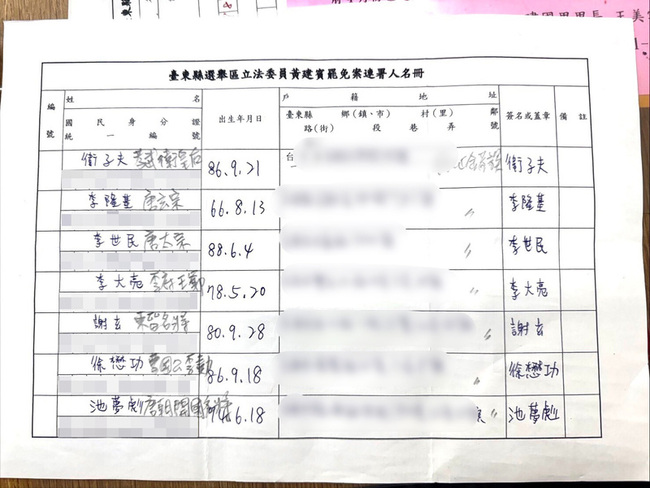 建國里里長 王美
臺東縣選舉區立法委員黃建賓罷免案連署人名冊
編號
姓名
國民身分證
統一編號
出生年月日
戶籍地址
臺東縣 鄉(鎮、市) 村(里) 鄰
路(街) 段 巷 弄 號
簽名或蓋章
備註
衛子夫 武衛皇后 86.9.21 台 衛子夫
李隆基 唐玄宗 66.8.13 〃 李隆基
李世民 唐太宗 88.6.4 〃 李世民
李大亮 78.5.20 〃 李大亮
謝玄 東晉名將 80.9.28 〃 謝玄
徐懋功 86.9.18 徐懋功
池夢彪 唐朝開國 6.18 〃 池夢彪